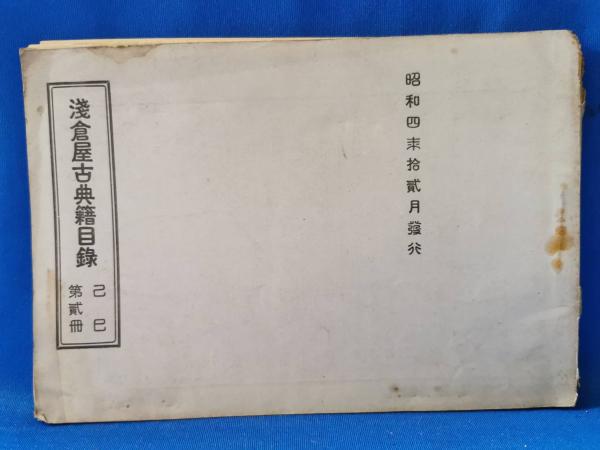 昭和四年拾貳月發行
淺倉屋古典籍目錄
己巳
第貳冊